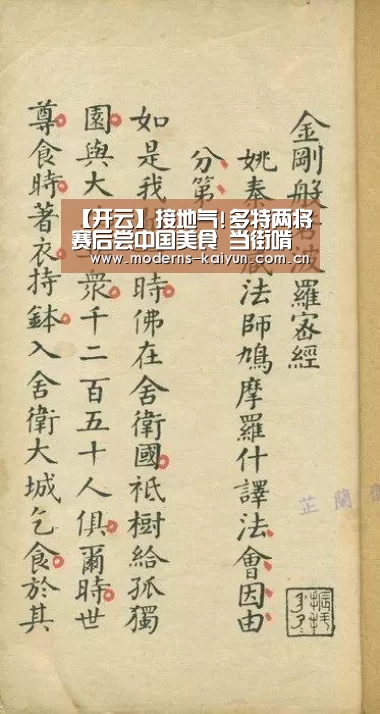 【开云】接地气!多特两将
赛后尝中国美食 当街啃
www.moderns-kaiyun.com.cn
金剛般波羅密經
姚秦藏法師鳩摩羅什譯法會因由
分第
如是我時佛在舍衛國祇樹給孤獨
園與大眾千二百五十人俱爾時世
尊食時著衣持鉢入舍衛大城乞食於其
芷蘭